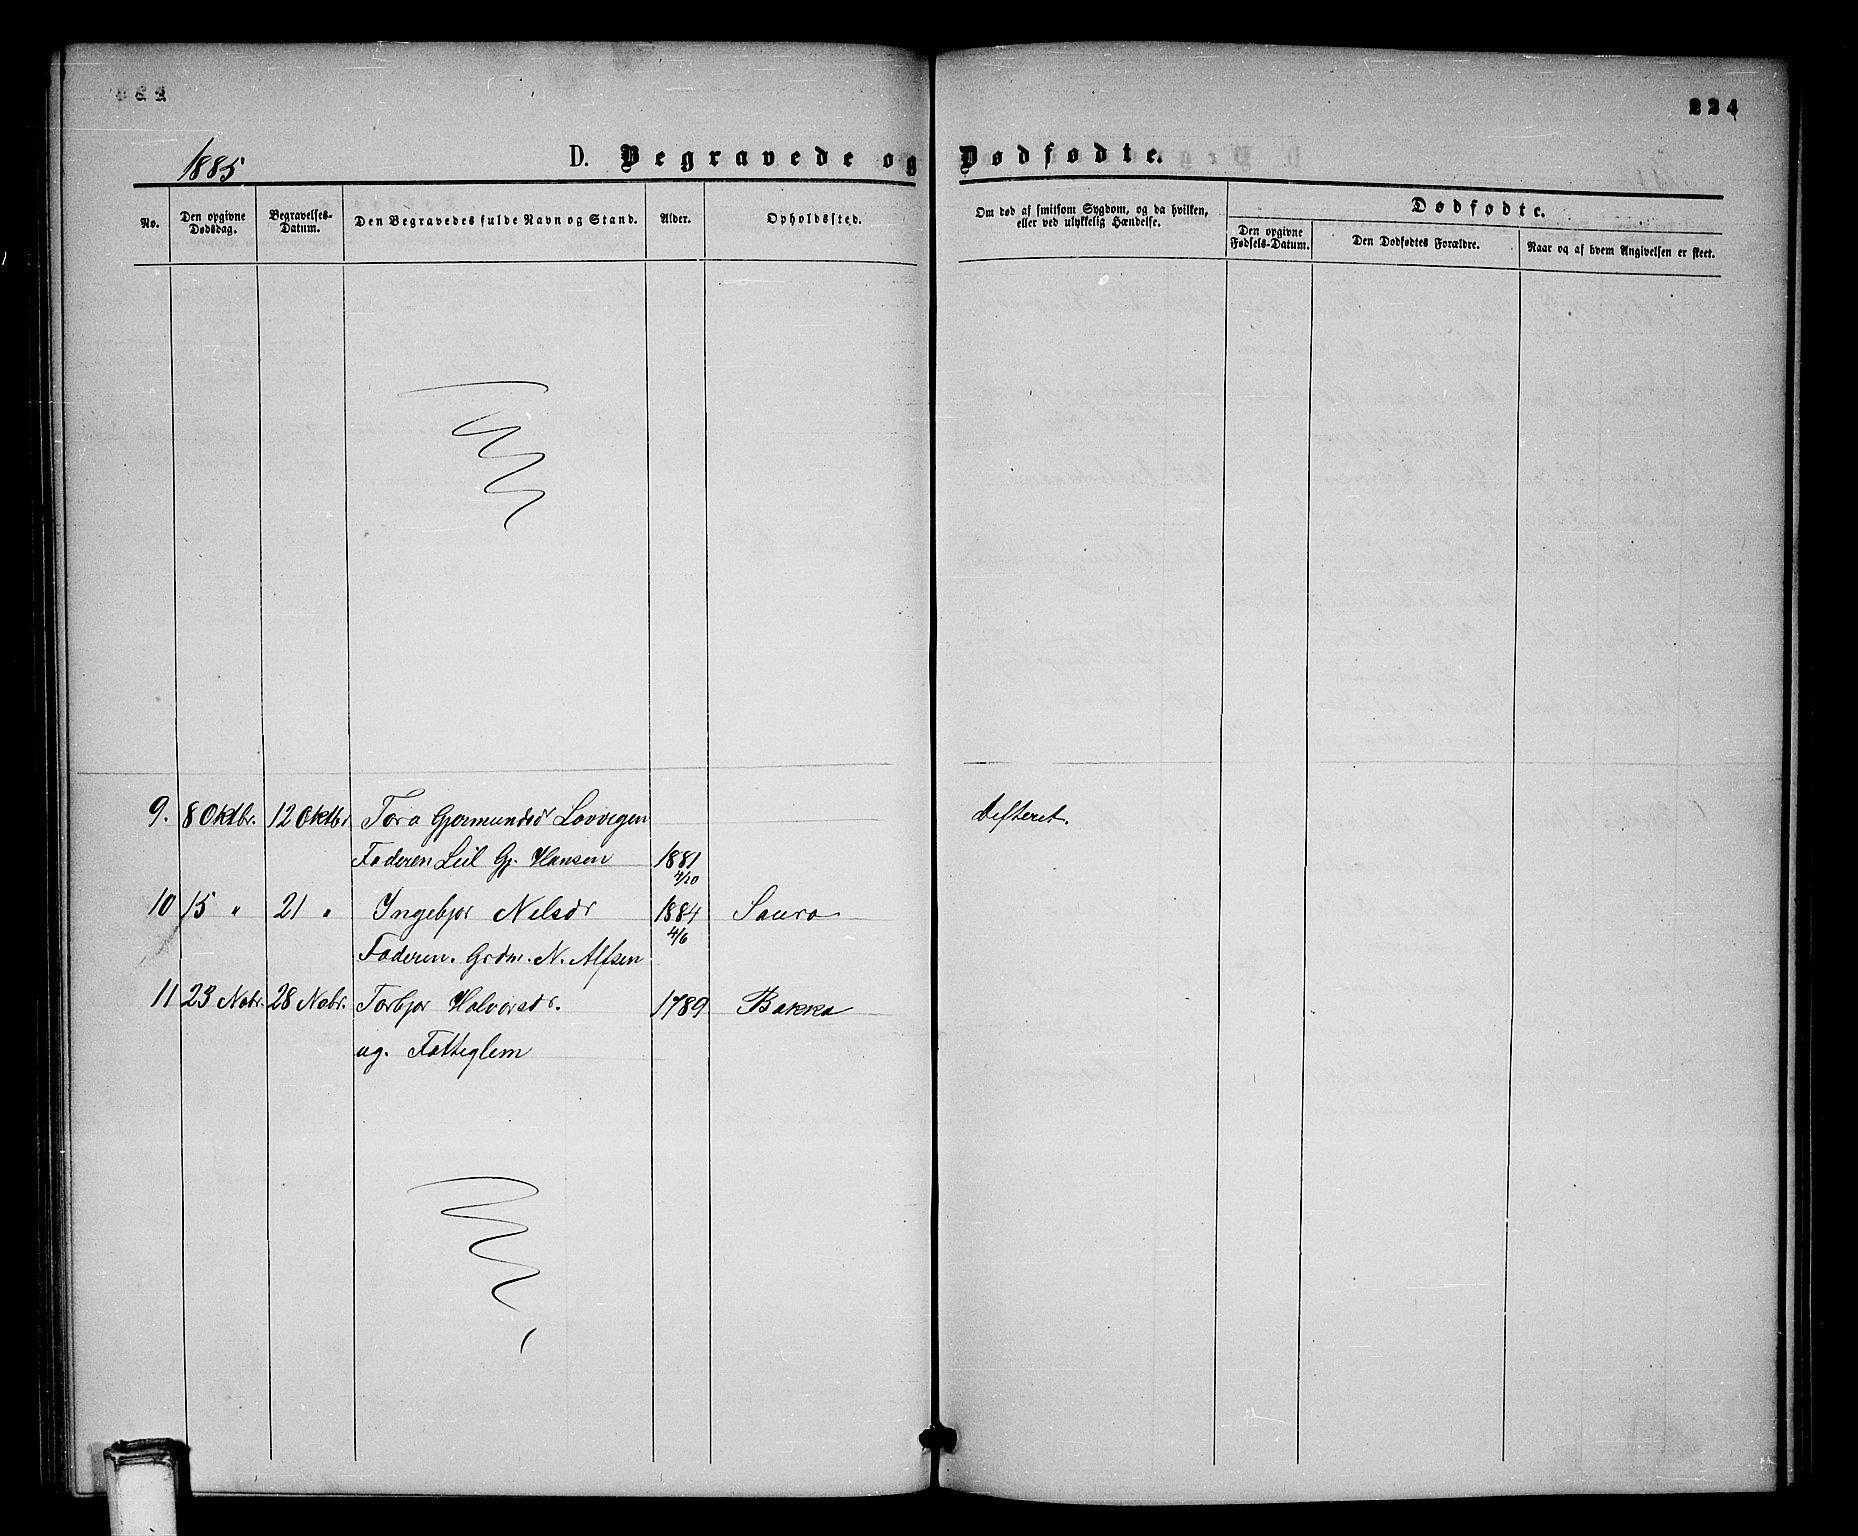 224
1885
D. Begravede og Dødfødte.
No.
Den opgivne Dødsdag.
Begravelses-Datum.
Den Begravedes fulde Navn og Stand.
Alder.
Opholdssted.
Om død af smitsom Sygdom, og da hvilken,
eller ved ulykkelig Hændelse.
Dødfødte.
Den opgivne Fødsels-Datum.
Den Dødfødtes Forældre.
Naar og af hvem Angivelsen er skeet.
9. 8 Oktbr. 12 Oktbr Tora Gjermundsdr Lovvegen Difteret.
Faderen Leil Gj. Hansen 1881 4/10
10 15 " 21 " Ingebjor Nelsdr 1884 4/6 Saura
Faderen. Grdm. N. Alfsen
11 23 Nobr. 28 Nobr. Torbjor Halvorsdr. 1789 Bakka
ug. Fattiglem